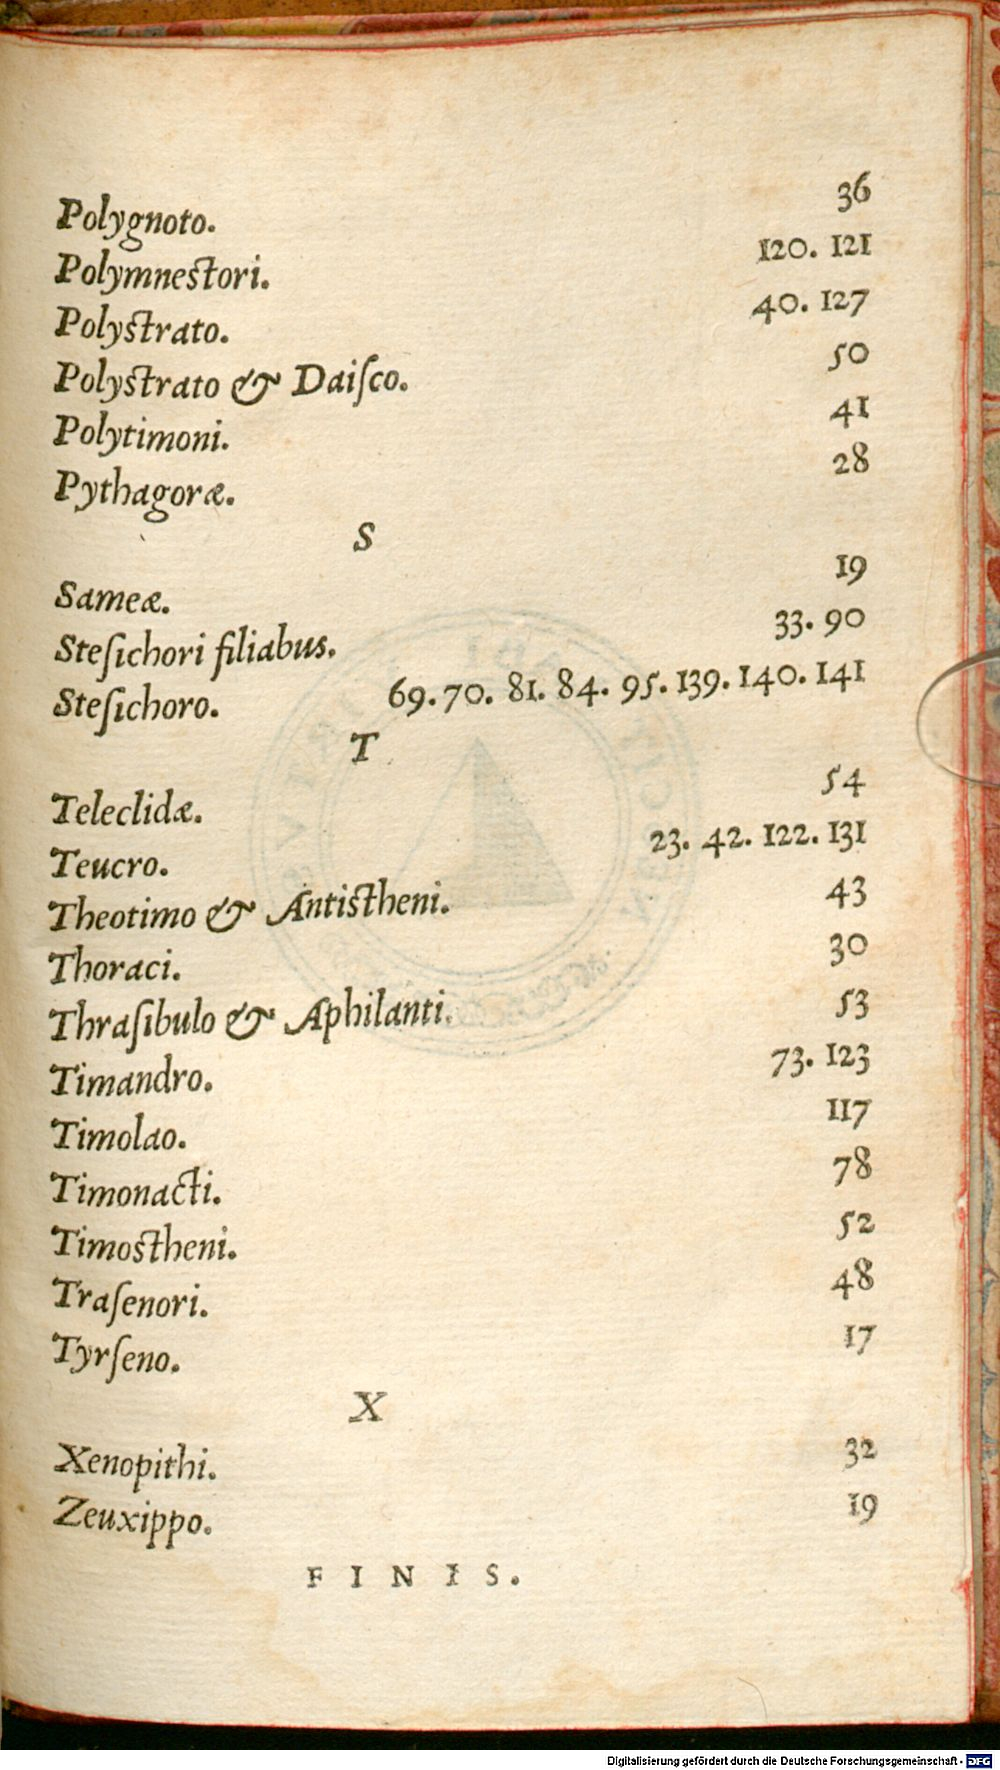 Polygnoto. 36
Polymnestori. 120. 121
Polystrato. 40. 127
Polystrato & Daiſco. 50
Polytimoni. 41
Pythagoræ. 28
S
Sameæ. 19
Steſichori filiabus. 33. 90
Steſichoro. 69. 70. 81. 84. 95. 139. 140. 141
T
Teleclidæ. 54
Teucro. 23. 42. 122. 131
Theotimo & Antistheni. 43
Thoraci. 30
Thraſibulo & Aphilanti. 53
Timandro. 73. 123
Timolao. 117
Timonacti. 78
Timostheni. 52
Traſenori. 48
Tyrſeno. 17
X
Xenopithi. 32
Zeuxippo. 19
FINIS.
Digitalisierung gefördert durch die Deutsche Forschungsgemeinschaft - DFG